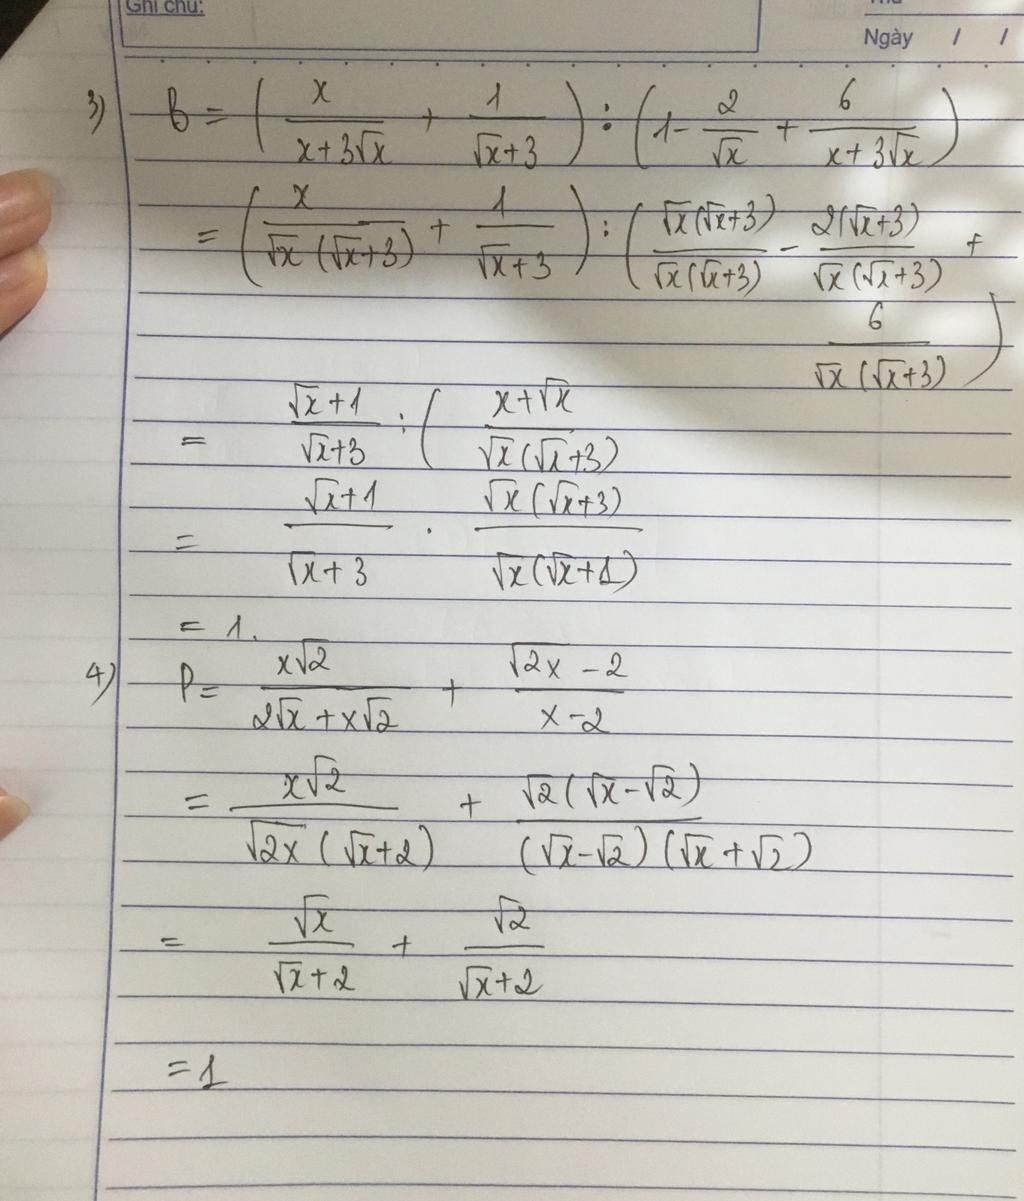 Ghi chú:
Thứ
Ngày / /
3) B = ( x/(x+3√x) + 1/(√x+3) ) : ( 1 - 2/√x + 6/(x+3√x) )
= ( x/(√x(√x+3)) + 1/(√x+3) ) : ( √x(√x+3)/(√x(√x+3)) - 2(√x+3)/(√x(√x+3)) +
6/(√x(√x+3)) )
= (√x+1)/(√x+3) : ( (x+√x)/(√x(√x+3))
= (√x+1)/(√x+3) . √x(√x+3)/(√x(√x+1))
= 1.
4) P = x√2/(2√x+x√2) + (√2x-2)/(x-2)
= x√2/(√2x(√x+2)) + √2(√x-√2)/((√x-√2)(√x+√2))
= √x/(√x+2) + √2/(√x+2)
= 1